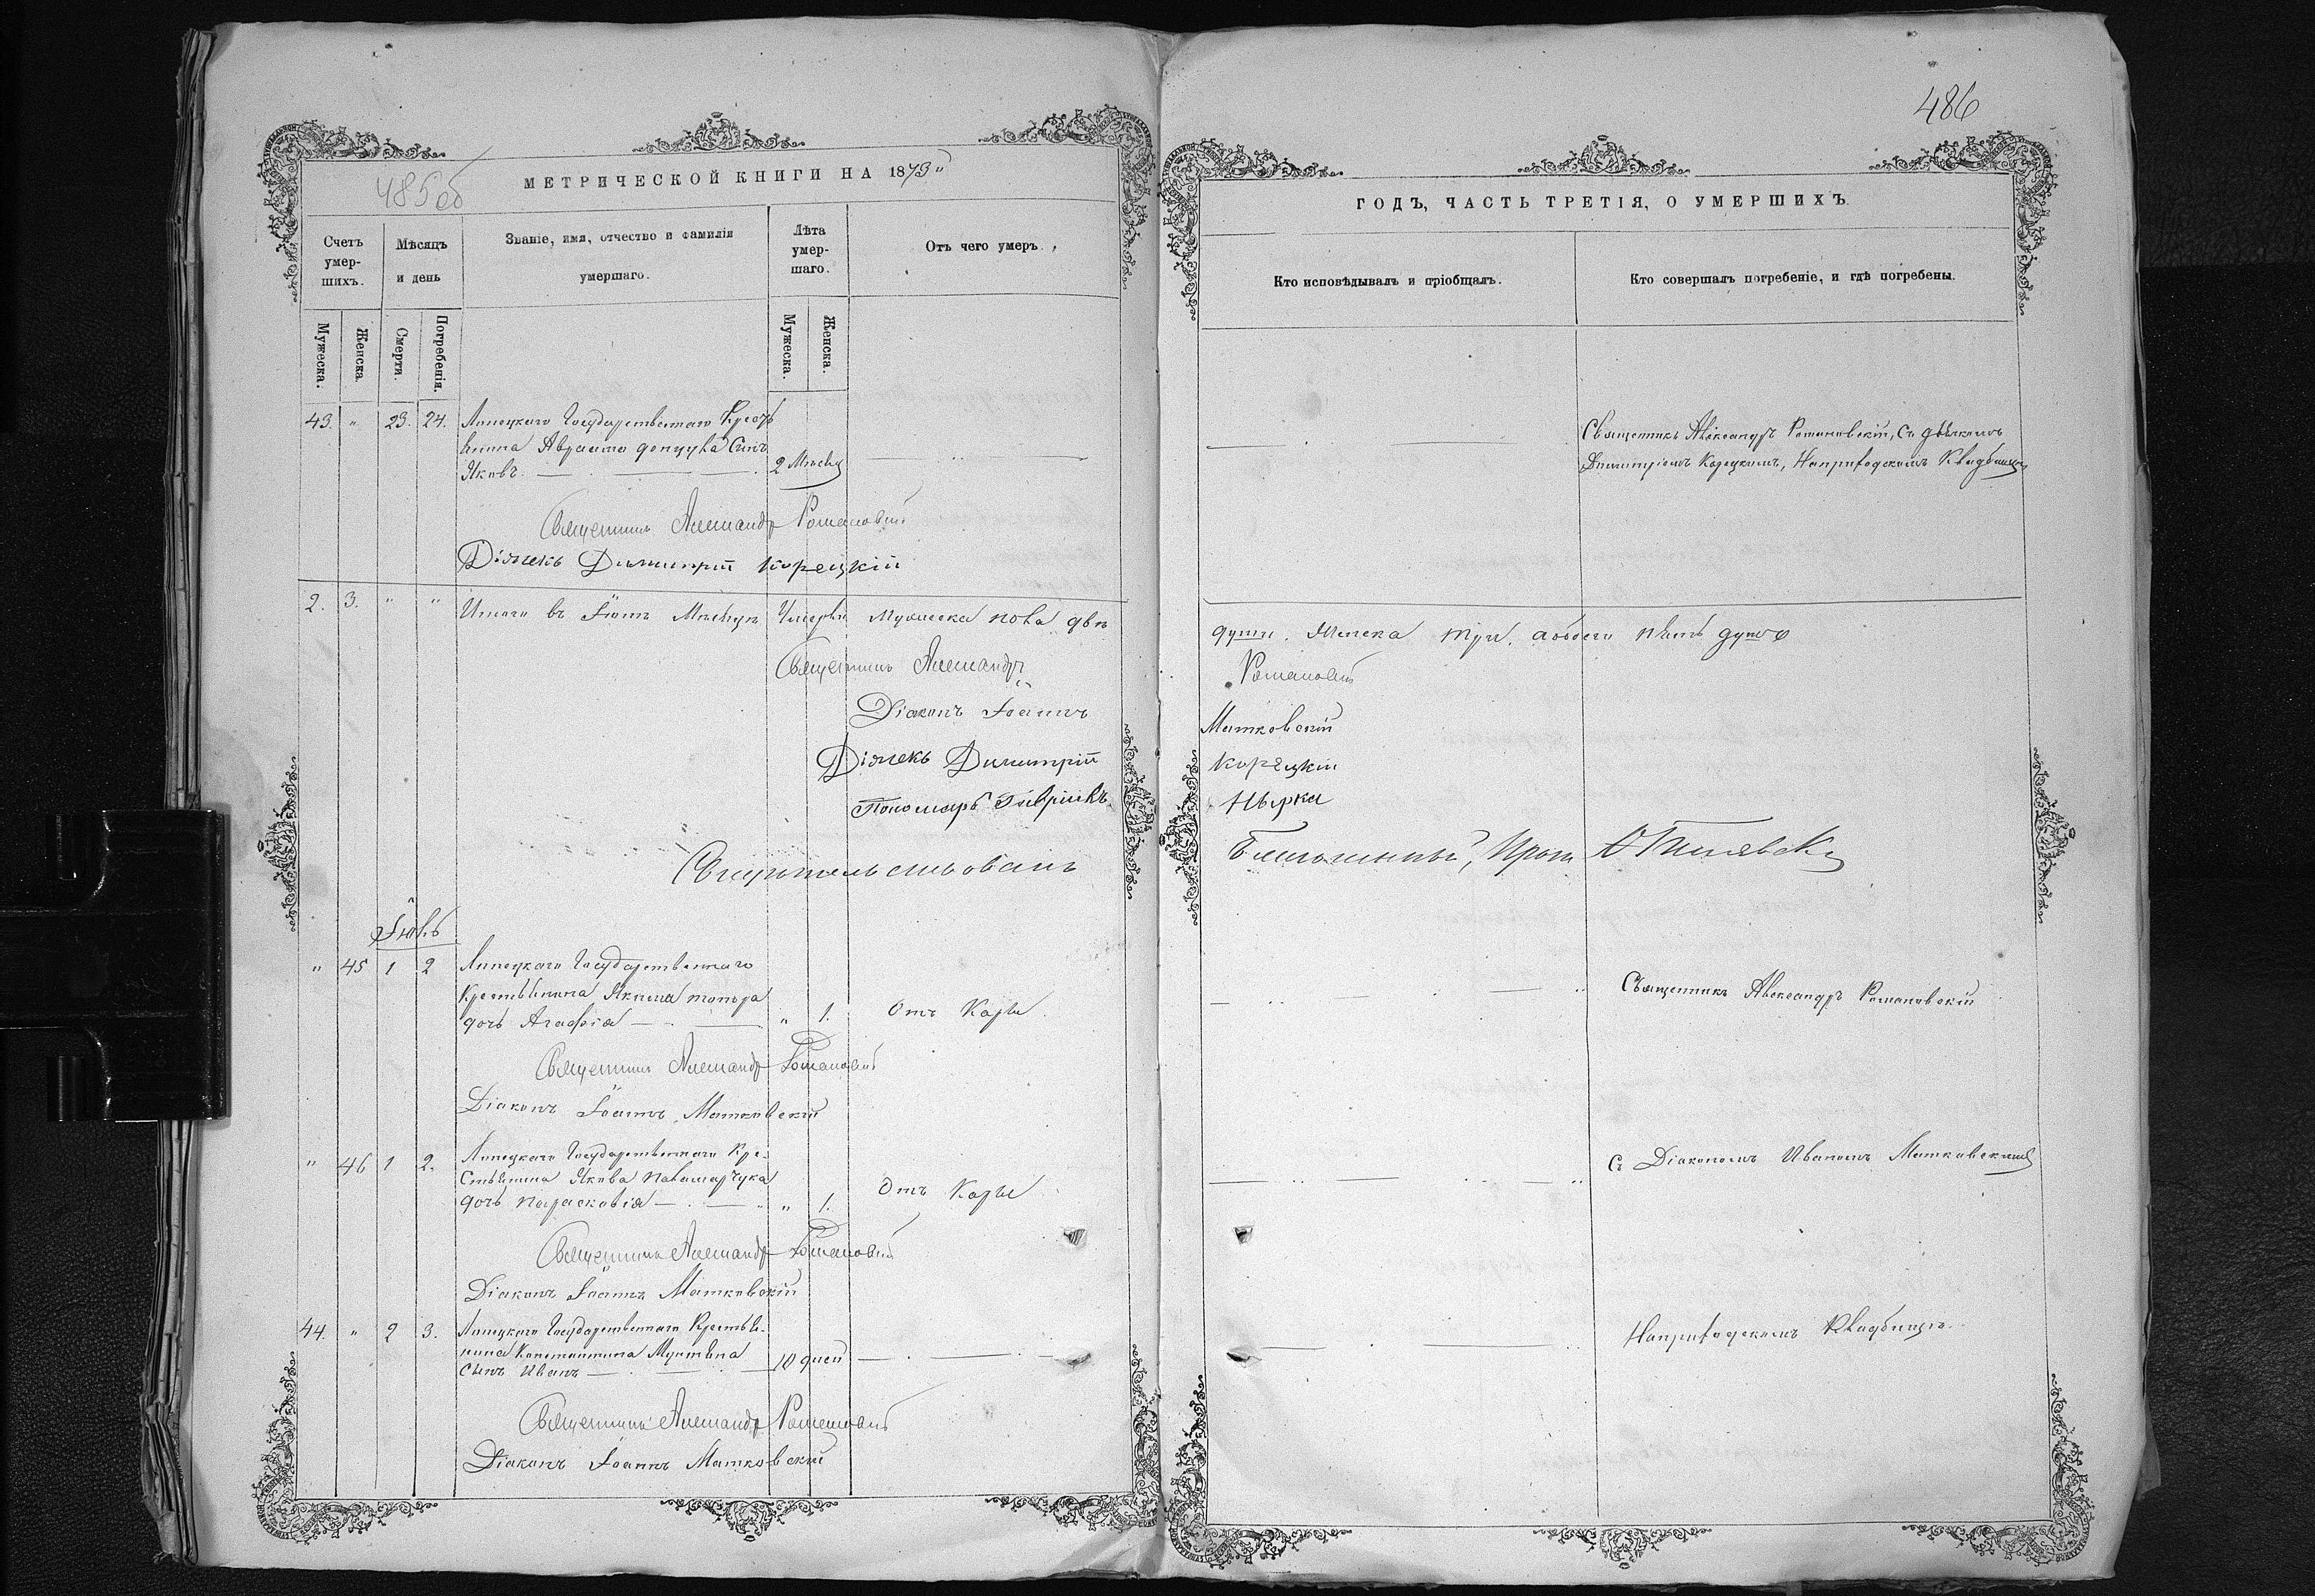 485об
МЕТРИЧЕСКОЙ КНИГИ НА 1873
Счетъ умер-шихъ.
Мѣсяцъ и день
Званіе, имя, отчество и фамилія умершаго.
Лѣта умер-шаго.
Отъ чего умеръ.
Мужеска.
Женска.
Смерти.
Погребенія.
Мужеска.
Женска.
43. " 23. 24. Липецкаго Государственнаго Кресть
янина Авраама сынъ
Яковъ 2 Мѣсяц
Священникъ Александръ Романовскій
Діячекъ Димитрій Корецкій
2. 3. " " Итого въ Іюнѣ Мѣсяцѣ Умерло Мужеска пола двѣ
Священникъ Александръ
Діаконъ Іоаннъ
Діячекъ Димитрій
Пономарь Гавріилъ
Свидѣтельствовалъ
Іюль
" 45 1 2 Липецкаго Государственнаго
Крестьянина Якима
дочь Агафія " 1. Отъ Кори
Священникъ Александръ Романовскій
Діаконъ Іоаннъ Матковскій
" 46 1 2. Липецкаго Государственнаго Кре-
стьянина Якова Паламарчука
дочь Парасковія " 1. Отъ Кори
Священникъ Александръ Романовскій
Діаконъ Іоаннъ Матковскій
44. " 2 3. Липецкаго Государственнаго Крестья-
нина Константина
сынъ Иванъ 10 дней
Священникъ Александръ Романовскій
Діаконъ Іоаннъ Матковскій
486
ГОДЪ, ЧАСТЬ ТРЕТІЯ, О УМЕРШИХЪ
Кто исповѣдывалъ и пріобщалъ.
Кто совершалъ погребеніе, и гдѣ погребены.
Священникъ Александръ Романовскій, съ дьячкомъ
Димитріемъ Корецкимъ, На приходскомъ Кладбищѣ
души. Женска три. а обоего пять душъ
Романовскій
Матковскій
Корецкій
Нырка
Благочинный, Прот
Священникъ Александръ Романовскій
Съ Діакономъ Иваномъ Матковскимъ
На приходскомъ Кладбищѣ